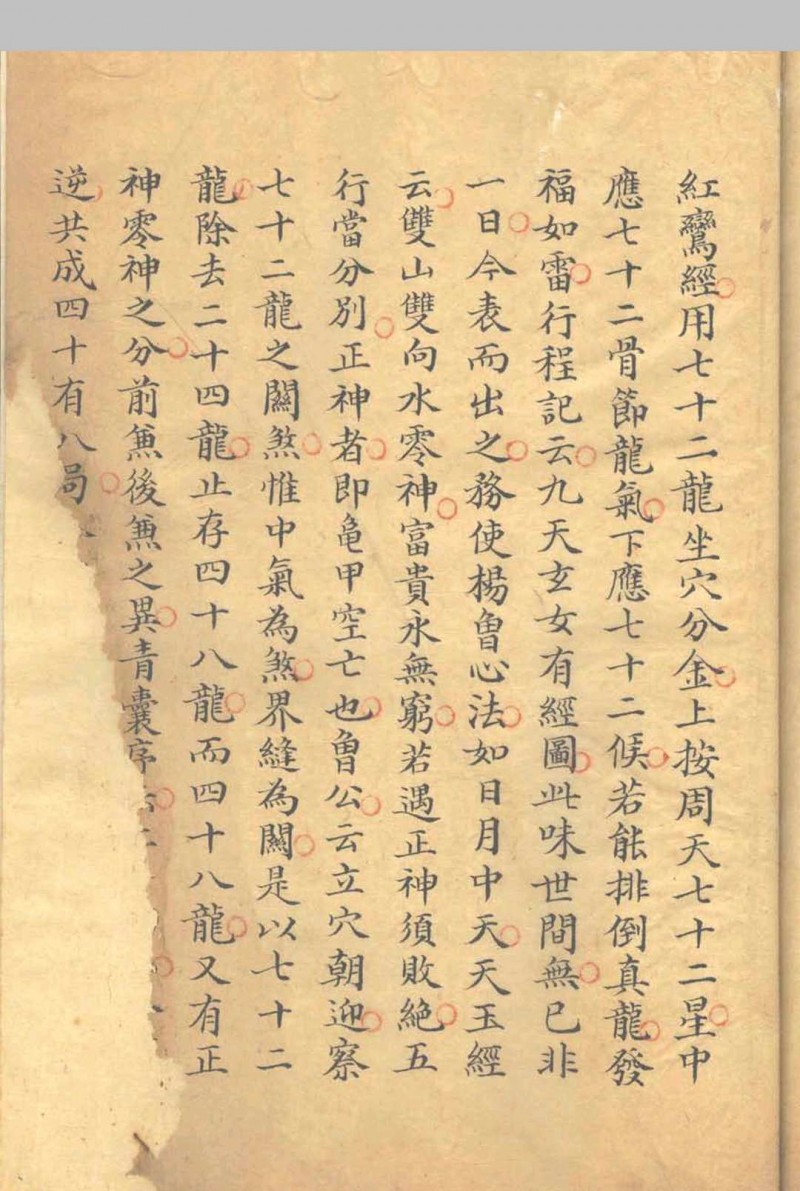 紅鸞經用七十二龍坐穴分金上按周天七十二星中
應七十二骨節龍氣下應七十二候若能排倒真龍發
福如雷行程記云九天玄女有經圖此味世間無已非
一日今表而出之務使楊曾心法如日月中天天玉經
云雙山雙向水零神富貴永無窮若遇正神須敗絕五
行當分別正神者即龜甲空亡也曾公云立穴朝迎察
七十二龍之關煞惟中氣為煞界縫為關是以七十二
龍除去二十四龍止存四十八龍而四十八龍又有正
神零神之分前兼後兼之異青囊序
逆共成四十有八局